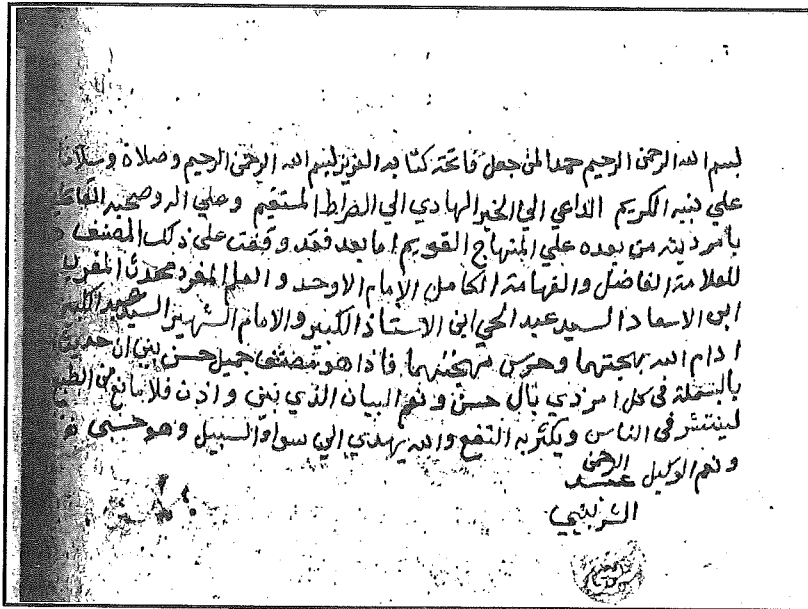 بسم الله الرحمن الرحيم حمدا لمن جعل فاتحة كتابه العزيز بسم الله الرحمن الرحيم وصلاة وسلاما
علي نبيه الكريم الداعي الي الخير الهادي الي الصراط المستقيم وعلي اله وصحبه
بأمر دينه من بعده علي المنهاج القويم اما بعد فقد وقفت علي ذلك المصنف
للعلامة الفاضل والفهامة الكامل الامام الاوحد والعلم المفرد محدث المغرب
ابي الاسعاد السيد عبد الحي ابن الاستاذ الكبير والامام الشهير السيد عبد الكبير
ادام الله بهجتهما وحرس مهجتهما فاذا هو مصنف جميل حسن بين ان حديث
بالبسملة في كل امر ذي بال حسن ونعم البيان الذي بين واذن فلا مانع من الطبع
لينتشر في الناس ويكثر به النفع والله يهدي الي سواء السبيل وهو حسبي
ونعم الوكيل عبد الرحمن
الشربيني